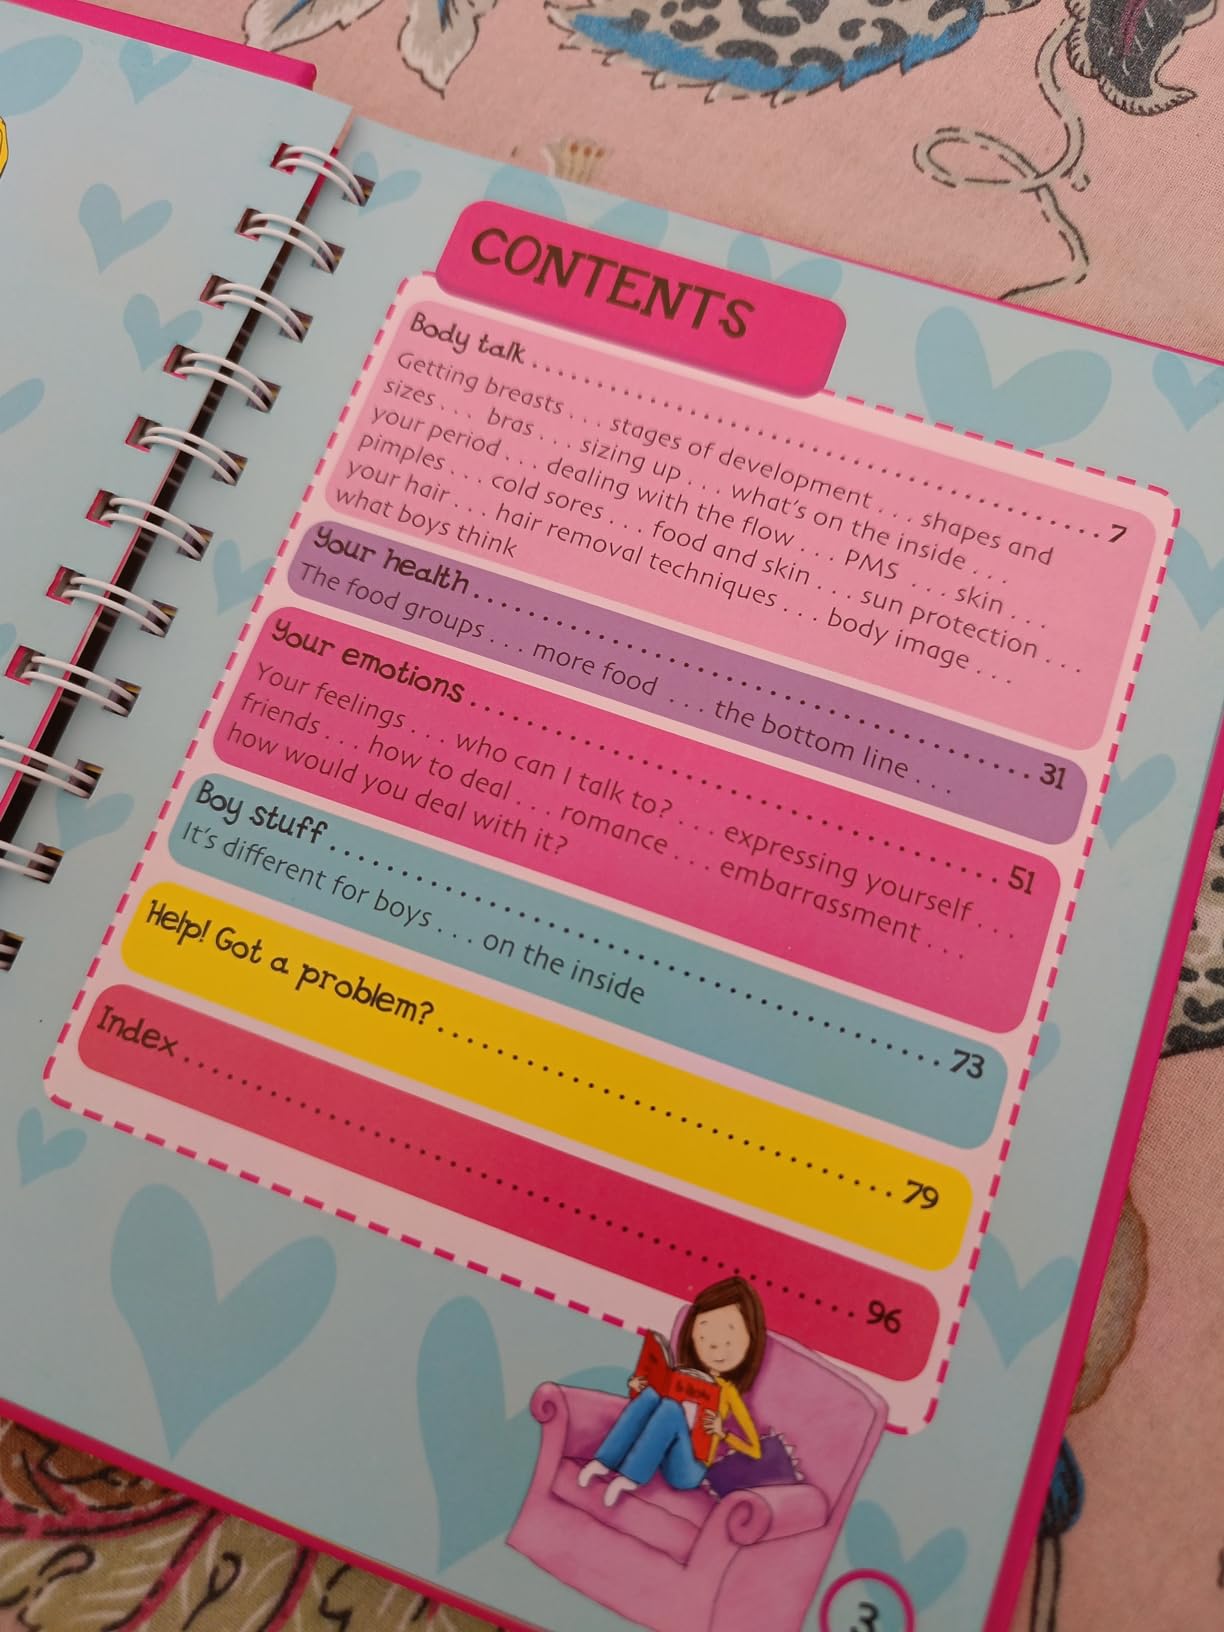 CONTENTS
Body talk........................................7
Getting breasts . . . stages of development . . . shapes and
sizes . . . bras . . . sizing up . . . what's on the inside . . .
your period . . . dealing with the flow . . . PMS . . . skin . . .
pimples . . . cold sores . . . food and skin . . . sun protection . . .
your hair . . . hair removal techniques . . . body image . . .
what boys think
Your health........................................31
The food groups . . . more food . . . the bottom line . . .
Your emotions........................................51
Your feelings . . . who can I talk to? . . . expressing yourself . . .
friends . . . how to deal . . . romance . . . embarrassment . . .
how would you deal with it?
Boy stuff........................................73
It's different for boys . . . on the inside
Help! Got a problem?........................................79
Index........................................96
3